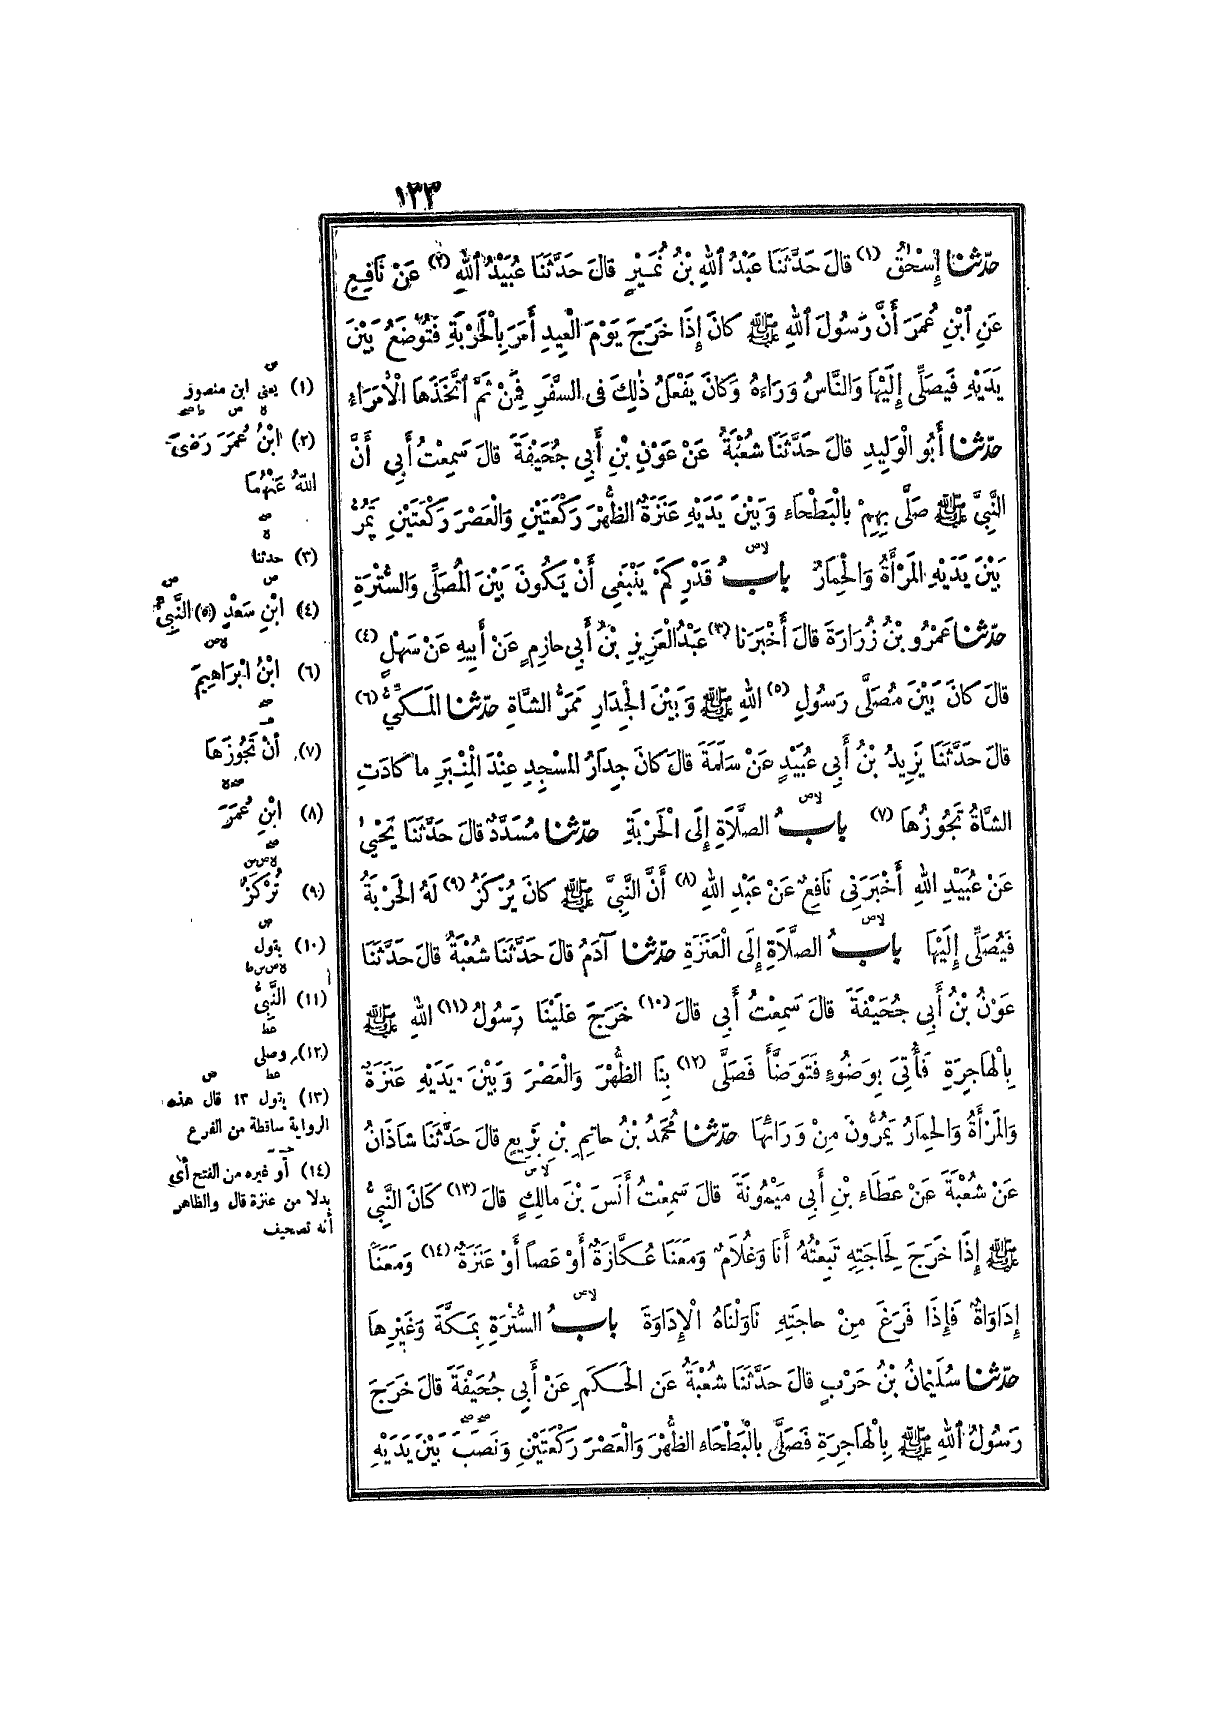 ١٣٣
حدّثنا إِسْحٰقُ (١) قَالَ حَدَّثَنَا عَبْدُ اللهِ بْنُ نُمَيْرٍ قَالَ حَدَّثَنَا عُبَيْدُ اللهِ (٢) عَنْ نَافِعٍ
عَنِ ابْنِ عُمَرَ أَنَّ رَسُولَ اللهِ ﷺ كَانَ إِذَا خَرَجَ يَوْمَ الْعِيدِ أَمَرَ بِالْحَرْبَةِ فَتُوضَعُ بَيْنَ
يَدَيْهِ فَيُصَلِّى إِلَيْهَا وَالنَّاسُ وَرَاءَهُ وَكَانَ يَفْعَلُ ذٰلِكَ فى السَّفَرِ فَمِنْ ثَمَّ اتَّخَذَهَا الْأُمَرَاءُ
حدّثنا أَبُو الْوَلِيدِ قَالَ حَدَّثَنَا شُعْبَةُ عَنْ عَوْنِ بْنِ أَبِى جُحَيْفَةَ قَالَ سَمِعْتُ أَبِى أَنَّ
النَّبِىَّ ﷺ صَلَّى بِهِمْ بِالْبَطْحَاءِ وَبَيْنَ يَدَيْهِ عَنَزَةٌ الظُّهْرَ رَكْعَتَيْنِ وَالْعَصْرَ رَكْعَتَيْنِ تَمُرُّ
بَيْنَ يَدَيْهِ الْمَرْأَةُ وَالْحِمَارُ بابُ قَدْرِ كَمْ يَنْبَغِى أَنْ يَكُونَ بَيْنَ الْمُصَلِّى وَالسُّتْرَةِ
حدّثنا عَمْرُو بْنُ زُرَارَةَ قَالَ أَخْبَرَنَا (٣) عَبْدُ الْعَزِيزِ بْنُ أَبِى حازِمٍ عَنْ أَبِيهِ عَنْ سَهْلٍ (٤)
قَالَ كَانَ بَيْنَ مُصَلَّى رَسُولِ (٥) اللهِ ﷺ وَبَيْنَ الْجِدَارِ مَمَرُّ الشَّاةِ حدّثنا الْمَكِّىُّ (٦)
قَالَ حَدَّثَنَا يَزِيدُ بْنُ أَبِى عُبَيْدٍ عَنْ سَلَمَةَ قَالَ كَانَ جِدَارُ الْمَسْجِدِ عِنْدَ الْمِنْبَرِ ما كَادَتِ
الشَّاةُ تَجُوزُهَا (٧) بابُ الصَّلَاةِ إِلَى الْحَرْبَةِ حدّثنا مُسَدَّدٌ قَالَ حَدَّثَنَا يَحْيٰى
عَنْ عُبَيْدِ اللهِ أَخْبَرَنِى نَافِعٌ عَنْ عَبْدِ اللهِ (٨) أَنَّ النَّبِىَّ ﷺ كَانَ يُرْكَزُ (٩) لَهُ الْحَرْبَةُ
فَيُصَلِّى إِلَيْهَا بابُ الصَّلَاةِ إِلَى الْعَنَزَةِ حدّثنا آدَمُ قَالَ حَدَّثَنَا شُعْبَةُ قَالَ حَدَّثَنَا
عَوْنُ بْنُ أَبِى جُحَيْفَةَ قَالَ سَمِعْتُ أَبِى قَالَ (١٠) خَرَجَ عَلَيْنَا رَسُولُ (١١) اللهِ ﷺ
بِالْهَاجِرَةِ فَأُتِىَ بِوَضُوءٍ فَتَوَضَّأَ فَصَلَّى (١٢) بِنَا الظُّهْرَ وَالْعَصْرَ وَبَيْنَ يَدَيْهِ عَنَزَةٌ
وَالْمَرْأَةُ وَالْحِمَارُ يَمُرُّونَ مِنْ وَرَائِهَا حدّثنا مُحَمَّدُ بْنُ حاتِمِ بْنِ بَزِيعٍ قَالَ حَدَّثَنَا شاذَانُ
عَنْ شُعْبَةَ عَنْ عَطَاءِ بْنِ أَبِى مَيْمُونَةَ قَالَ سَمِعْتُ أَنَسَ بْنَ مَالِكٍ قَالَ (١٣) كَانَ النَّبِىُّ
ﷺ إِذَا خَرَجَ لِحَاجَتِهِ تَبِعْتُهُ أَنَا وَغُلَامٌ وَمَعَنَا عُكَّازَةٌ أَوْ عَصاً أَوْ عَنَزَةٌ (١٤) وَمَعَنَا
إِدَاوَةٌ فَإِذَا فَرَغَ مِنْ حاجَتِهِ نَاوَلْنَاهُ الْإِدَاوَةَ بابُ السُّتْرَةِ بِمَكَّةَ وَغَيْرِهَا
حدّثنا سُلَيْمَانُ بْنُ حَرْبٍ قَالَ حَدَّثَنَا شُعْبَةُ عَنِ الْحَكَمِ عَنْ أَبِى جُحَيْفَةَ قَالَ خَرَجَ
رَسُولُ اللهِ ﷺ بِالْهَاجِرَةِ فَصَلَّى بِالْبَطْحَاءِ الظُّهْرَ وَالْعَصْرَ رَكْعَتَيْنِ وَنَصَبَ بَيْنَ يَدَيْهِ
(١) يعنى ابن منصور
(٢) ابْنُ عُمَرَ رَضِىَ
اللهُ عَنْهُمَا
(٣) حدثنا
(٤) ابْنِ سَعْدٍ (٥) النَّبِىِّ
(٦) ابْنُ ابْرَاهِيمَ
(٧) أَنْ تَجُوزَهَا
(٨) ابْنِ عُمَرَ
(٩) تُرْكَزُ
(١٠) يقول
(١١) النَّبِىُّ
(١٢) وصلى
(١٣) يقول ١٣ قال هذه
الرواية ساقطة من الفرع
(١٤) أو غيره من الفتح أى
بدلا من عنزة قال والظاهر
أنه تصحيف